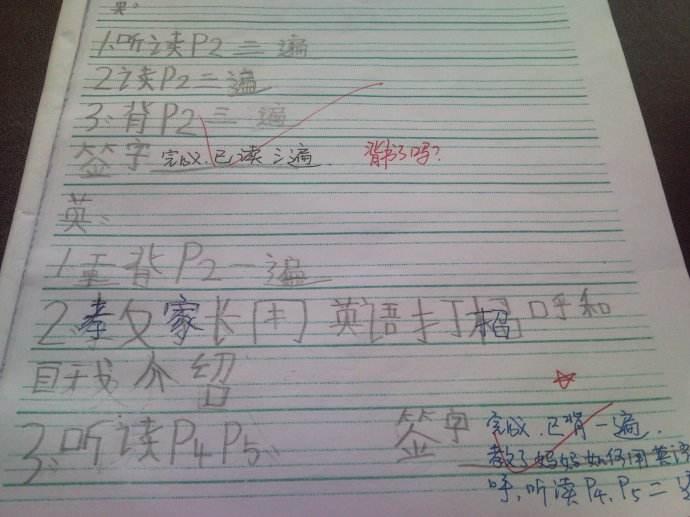 英:
1.听读P2二遍
2读P2二遍
3:背P2三遍
签字 完成.已读三遍. 背书了吗?
英:
1重背P2一遍
2.孝文家长[丰]英语打招呼和
自我介绍
3:听读P4P5. 签字 完成.已背一遍.
教了妈妈如何用英语
呼,听读P4.P5二